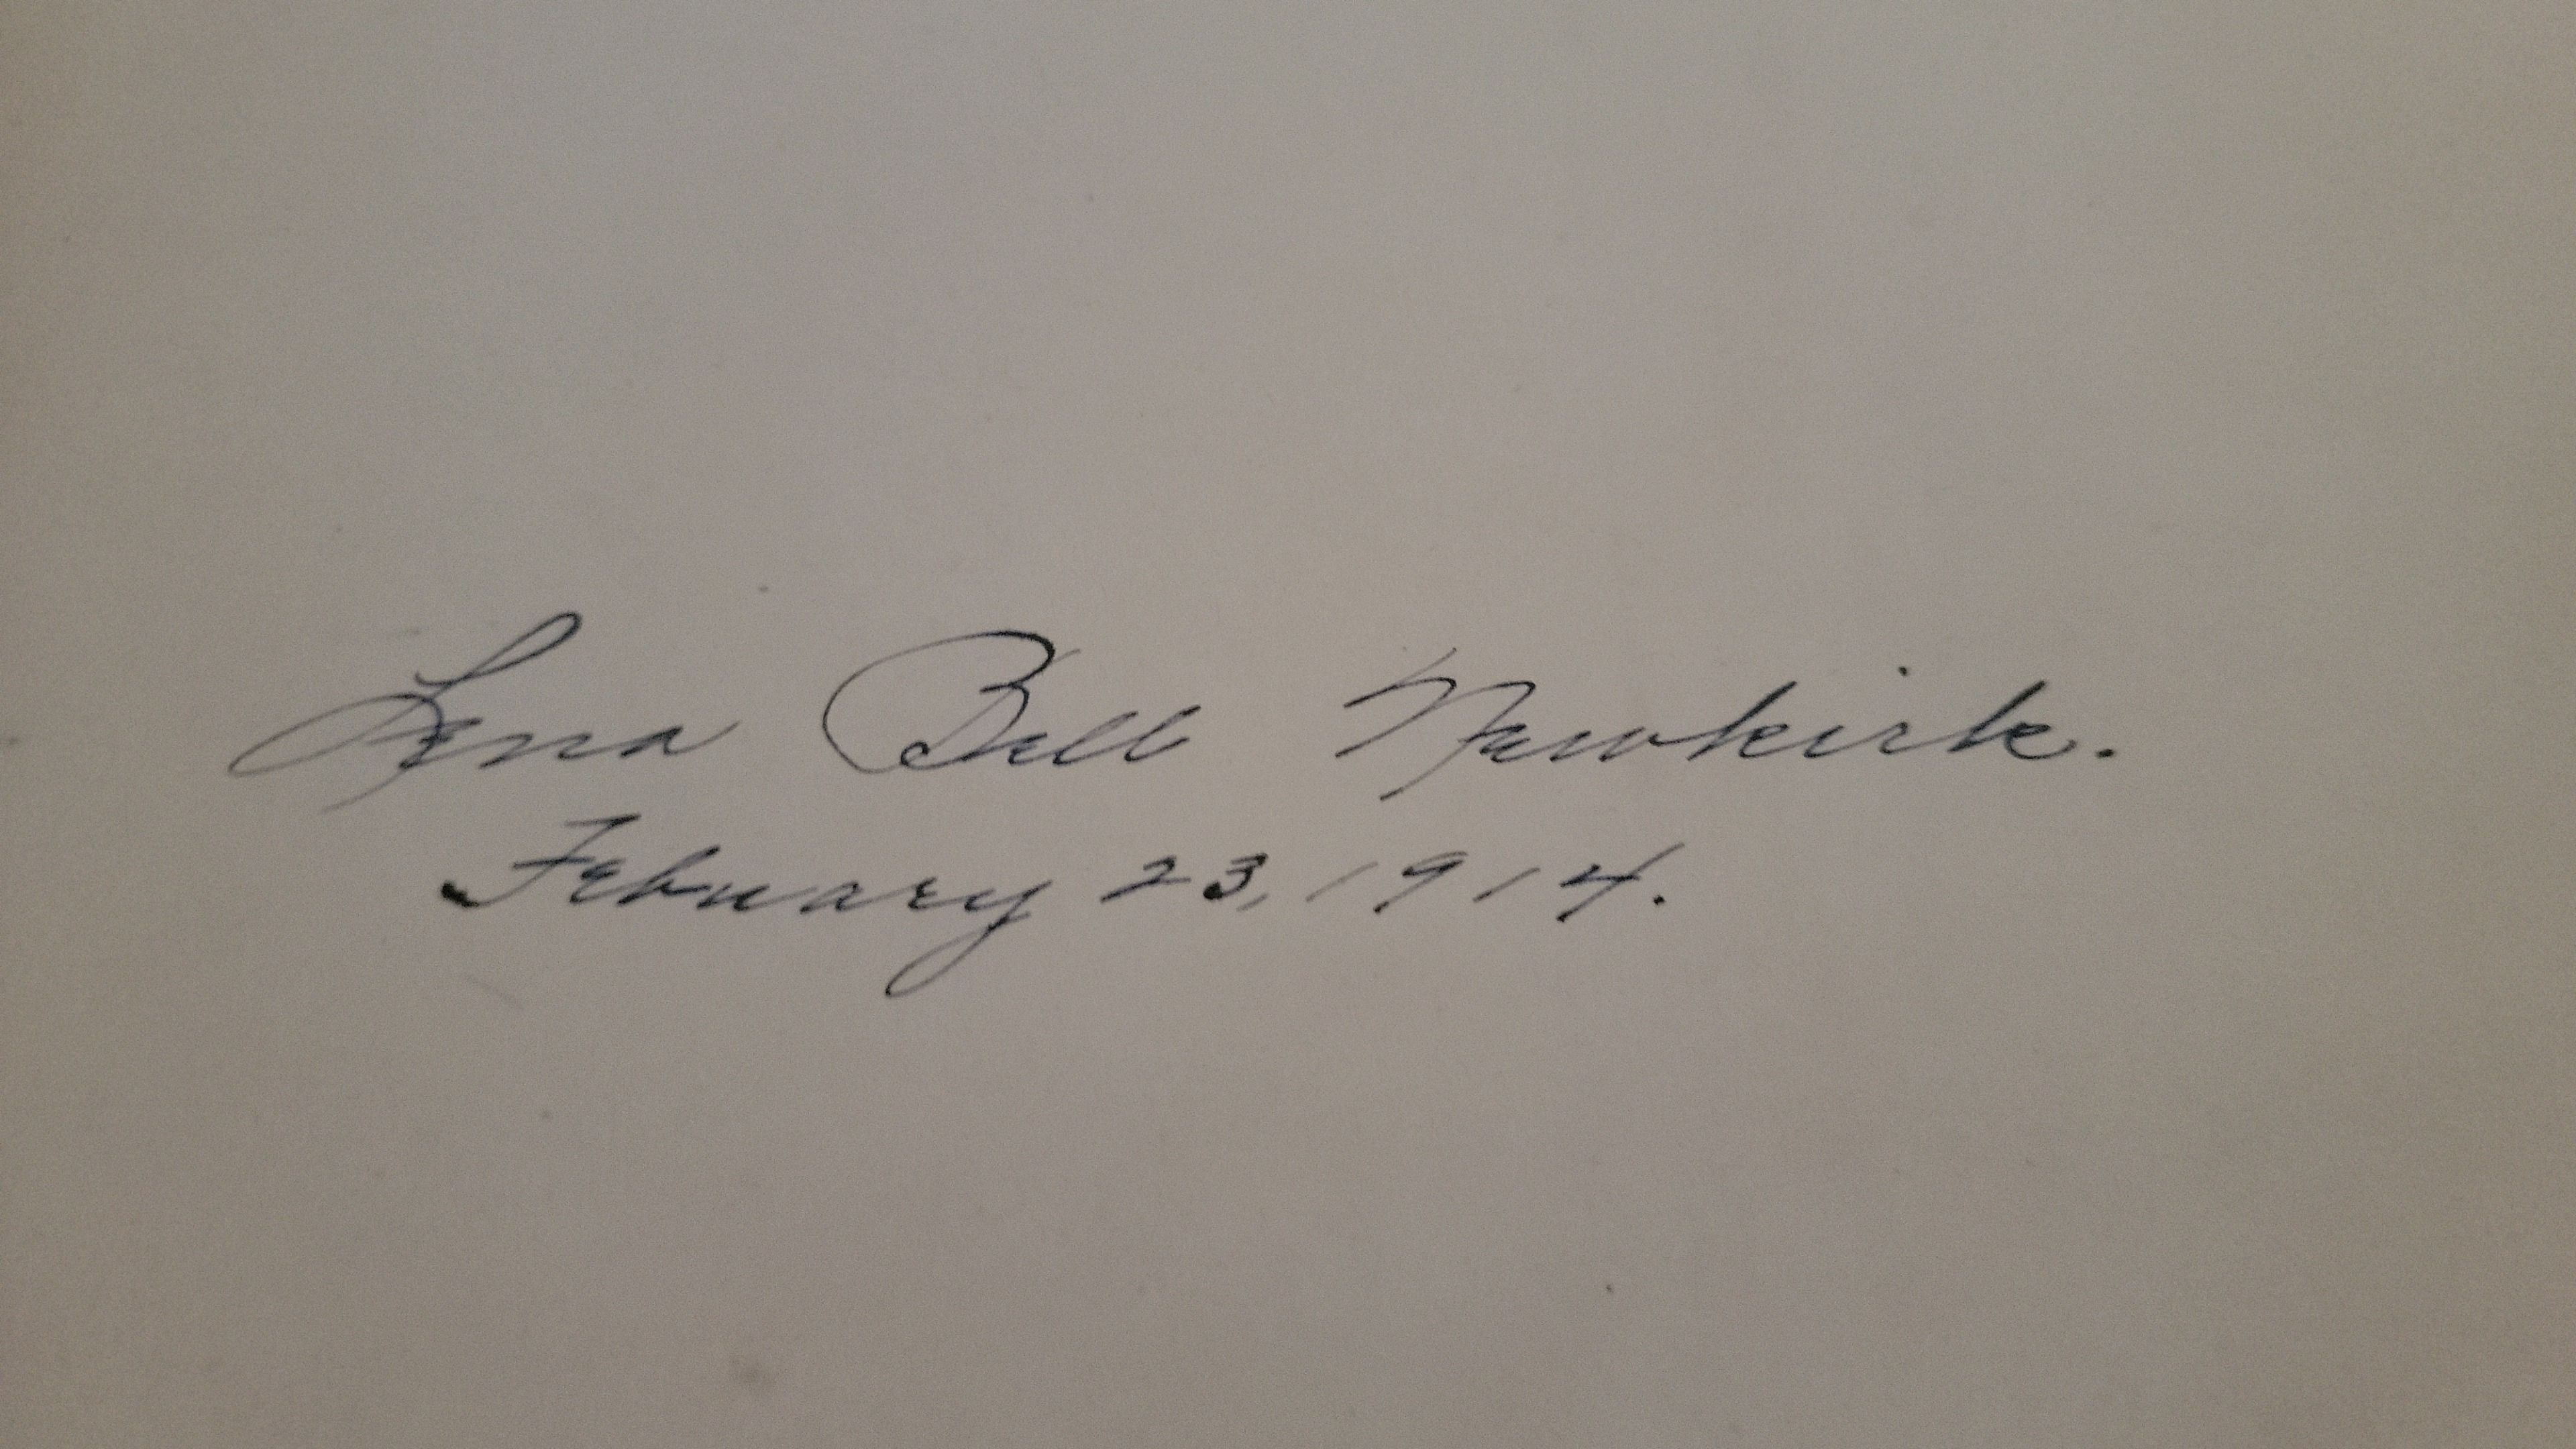 Lena Bell Newkirk.
Febuary 23, 1914.